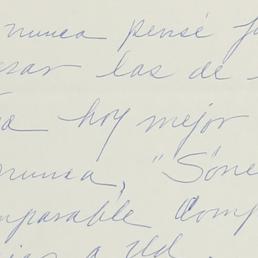 nunca pensé
las de
hoy mejor
nunca, "Sóne
mparable Comp
a Ud.